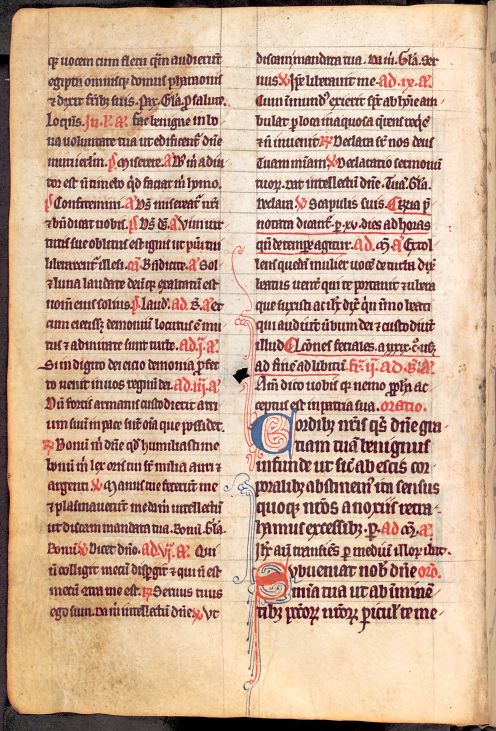 q̃ uocem cum fletu qm̃ audierũt
egiptii omnisq; domus pharaonis
⁊ dixit frĩbȝ suis. Ps̃. Glã. p̱ salute.
In. ℟. A᷒. fac benigne in bo
na uoluntate tua ut edificent̃ dñe
muri ierlm̃. p̃s. Miserere. A᷒. Dñ adiu
tor est ñ timebo q̃d faciat m̃ homo.
p̃s. Confitemini. A᷒. Dš misereat̃ nr̃i
⁊ bñdicat nobis. p̃s. Dš dš. A᷒. Vim uir
tutis sue oblitus est ignis ut pũi tui
liberarent̃ illesi. cm̃. Bñdicite. A᷒. Sol
⁊ luna laudate deũ q̃ exaltatũ est
nom̃ eius solius. p̃s. laud̃. ad. B̃. A᷒. et
cum eiecissȝ demoniũ locutus ẽ mu
tus ⁊ admirate sunt turbe. ad. j̃. A᷒.
Si in digito dei eicio demonia p̱fec
to uenit in uos regnũ dei. ad. iij̃. A᷒.
Dũ fortis armatus custodierit atri
um suũ in pace sunt oĩa que possidet.
℟. Bonũ m̃ dñe q̃d humiliasti me
bonũ m̃ lex oris tui sr̃ milia auri ⁊
argenti. ℣. Manus tue fecerũt me
⁊ plasmauerũt me da m̃ intellectũ
ut discam mandata tua. Bonũ. Glã.
Bonũ. ℣. Dicet dño. ad. vj̃. A᷒. Qui
ñ colligit mecũ disp̱git ⁊ qui ñ est
mecũ contra me est. ℟. Seruus tuus
ego sum. Da m̃ intellectũ dñe. ℣. Vt
discam mandata tua. Da m̃. Glã. Ser
uus. ℣. Ip̃e liberauit me. ad. ix. A᷒.
Cum inmund᷒ exierit sp̃c ab hõĩe am
bulat p̱ loca inaquosa q̃rens req̃iẽ
⁊ ñ inuenit. ℟. Declara sr̃ nos deus
Tuam m̃iam. ℣. Declaratio sermonũ
tuoꝝ. dat intellectũ dñe. Tuã. Glã.
Declara. ℣. Scapulis suis. Cet̃a p̃
notata dicant̃ p̱ xv. dies ad horas
qñ de temp̱e agitur. ad. cm̃. A᷒. Extol
lens quedã mulier uocẽ de turba dix̃
beatus uenter qui te portauit ⁊ ubera
que suxisti at ih̃c dix̃ qn̄imo beati
qui audiũt ũbum dei ⁊ custodiũt
illud.
ad finẽ ad libitũ. fr̃. ij̃. ad. B̃. A᷒.
Am̃ dico uobis q̃ nemo p̱ph̃a ac
ceptus est in patria sua. oratio.
Cordibȝ nr̃is q̃s dñe gra
tiam tuã benignus
infunde ut sic̃ ab escis cor
poralibȝ abstinem᷒ ita sensus
quoq; nr̃os a noxiis retra
hamus excessibȝ. p̱. ad cm̃. A᷒.
Ih̃c aut̃ transiens p̱ mediũ illoꝝ ibat.
Subueniat nob̃ dñe orõ.
m̃ia tua ut ab inminẽ
tibȝ pcc̃oꝝ nr̃oꝝ. p̱icul᷒ te me